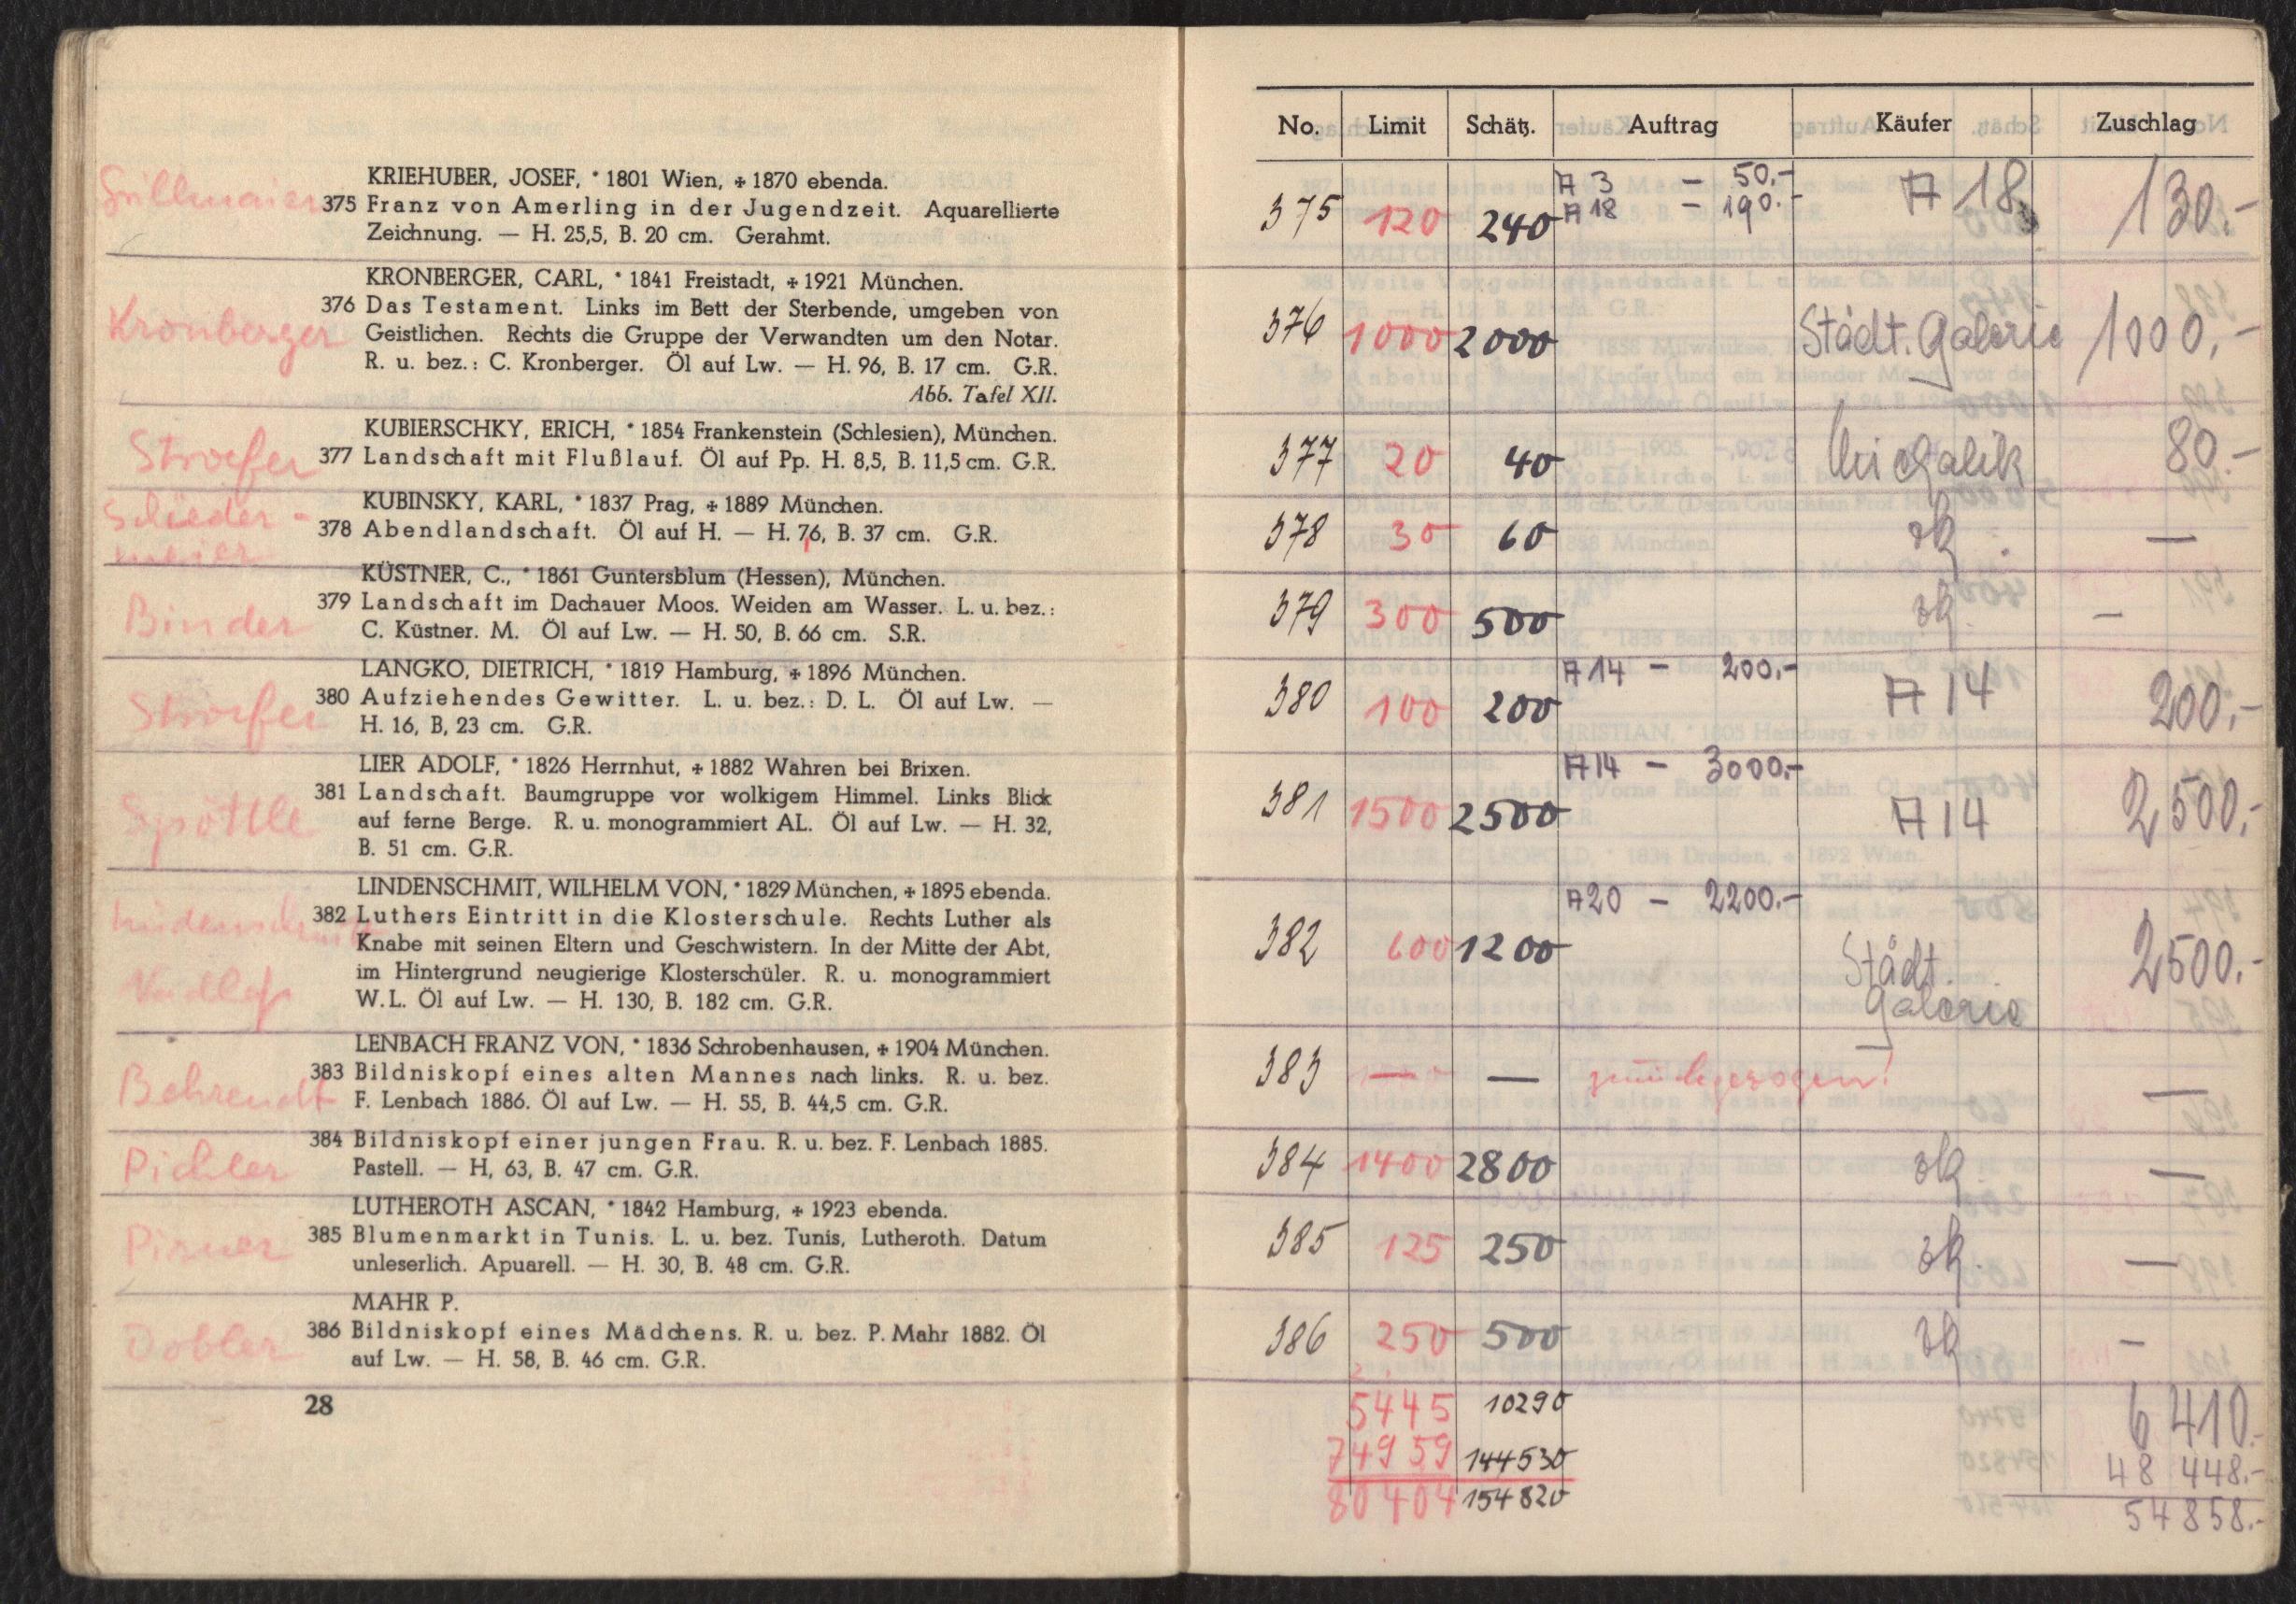 KRIEHUBER, JOSEF, * 1801 Wien, + 1870 ebenda.
375 Franz von Amerling in der Jugendzeit. Aquarellierte
Zeichnung. — H. 25,5, B. 20 cm. Gerahmt.
Kronberger
KRONBERGER, CARL, * 1841 Freistadt, + 1921 München.
376 Das Testament. Links im Bett der Sterbende, umgeben von
Geistlichen. Rechts die Gruppe der Verwandten um den Notar.
R. u. bez.: C. Kronberger. Öl auf Lw. — H. 96, B. 17 cm. G.R.
Abb. Tafel XII.
Stroefer
KUBIERSCHKY, ERICH, * 1854 Frankenstein (Schlesien), München.
377 Landschaft mit Flußlauf. Öl auf Pp. H. 8,5, B. 11,5 cm. G.R.
Schieder-
meier
KUBINSKY, KARL, * 1837 Prag, + 1889 München.
378 Abendlandschaft. Öl auf H. — H. 76, B. 37 cm. G.R.
Binder
KÜSTNER, C., * 1861 Guntersblum (Hessen), München.
379 Landschaft im Dachauer Moos. Weiden am Wasser. L. u. bez.:
C. Küstner. M. Öl auf Lw. — H. 50, B. 66 cm. S.R.
Stroefer
LANGKO, DIETRICH, * 1819 Hamburg, + 1896 München.
380 Aufziehendes Gewitter. L. u. bez.: D. L. Öl auf Lw. —
H. 16, B, 23 cm. G.R.
Spöttle
LIER ADOLF, * 1826 Herrnhut, + 1882 Wahren bei Brixen.
381 Landschaft. Baumgruppe vor wolkigem Himmel. Links Blick
auf ferne Berge. R. u. monogrammiert AL. Öl auf Lw. — H. 32,
B. 51 cm. G.R.
LINDENSCHMIT, WILHELM VON, * 1829 München, + 1895 ebenda.
382 Luthers Eintritt in die Klosterschule. Rechts Luther als
Knabe mit seinen Eltern und Geschwistern. In der Mitte der Abt,
im Hintergrund neugierige Klosterschüler. R. u. monogrammiert
W.L. Öl auf Lw. — H. 130, B. 182 cm. G.R.
Behrendt
LENBACH FRANZ VON, * 1836 Schrobenhausen, + 1904 München.
383 Bildniskopf eines alten Mannes nach links. R. u. bez.
F. Lenbach 1886. Öl auf Lw. — H. 55, B. 44,5 cm. G.R.
Pichler
384 Bildniskopf einer jungen Frau. R. u. bez. F. Lenbach 1885.
Pastell. — H, 63, B. 47 cm. G.R.
Pirner
LUTHEROTH ASCAN, * 1842 Hamburg, + 1923 ebenda.
385 Blumenmarkt in Tunis. L. u. bez. Tunis, Lutheroth. Datum
unleserlich. Apuarell. — H. 30, B. 48 cm. G.R.
Dobler
MAHR P.
386 Bildniskopf eines Mädchens. R. u. bez. P. Mahr 1882. Öl
auf Lw. — H. 58, B. 46 cm. G.R.
28
No. Limit Schätz. Auftrag Käufer Zuschlag
A 3 — 50.-
A 18 — 190.-
375 120 240 A 18 130.-
376 1000 2000 Städt. Galerie 1000,-
377 20 40 Michalik 80.-
378 30 60 zk. —
379 300 500 zk. —
A 14 — 200.-
380 100 200 A 14 200.-
A 14 — 3000.-
381 1500 2500 A 14 2500.-
A 20 — 2200.-
382 600 1200 Städt. Galerie 2500.-
383 — — zurückgezogen! —
384 1400 2800 zk. —
385 125 250 zk. —
386 250 500 zk —
5445 10290 6410.-
74959 144530 48448.-
80404 154820 54858.-